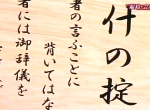 什の掟
者の言ふことに
背いてはな
者には御辞儀を